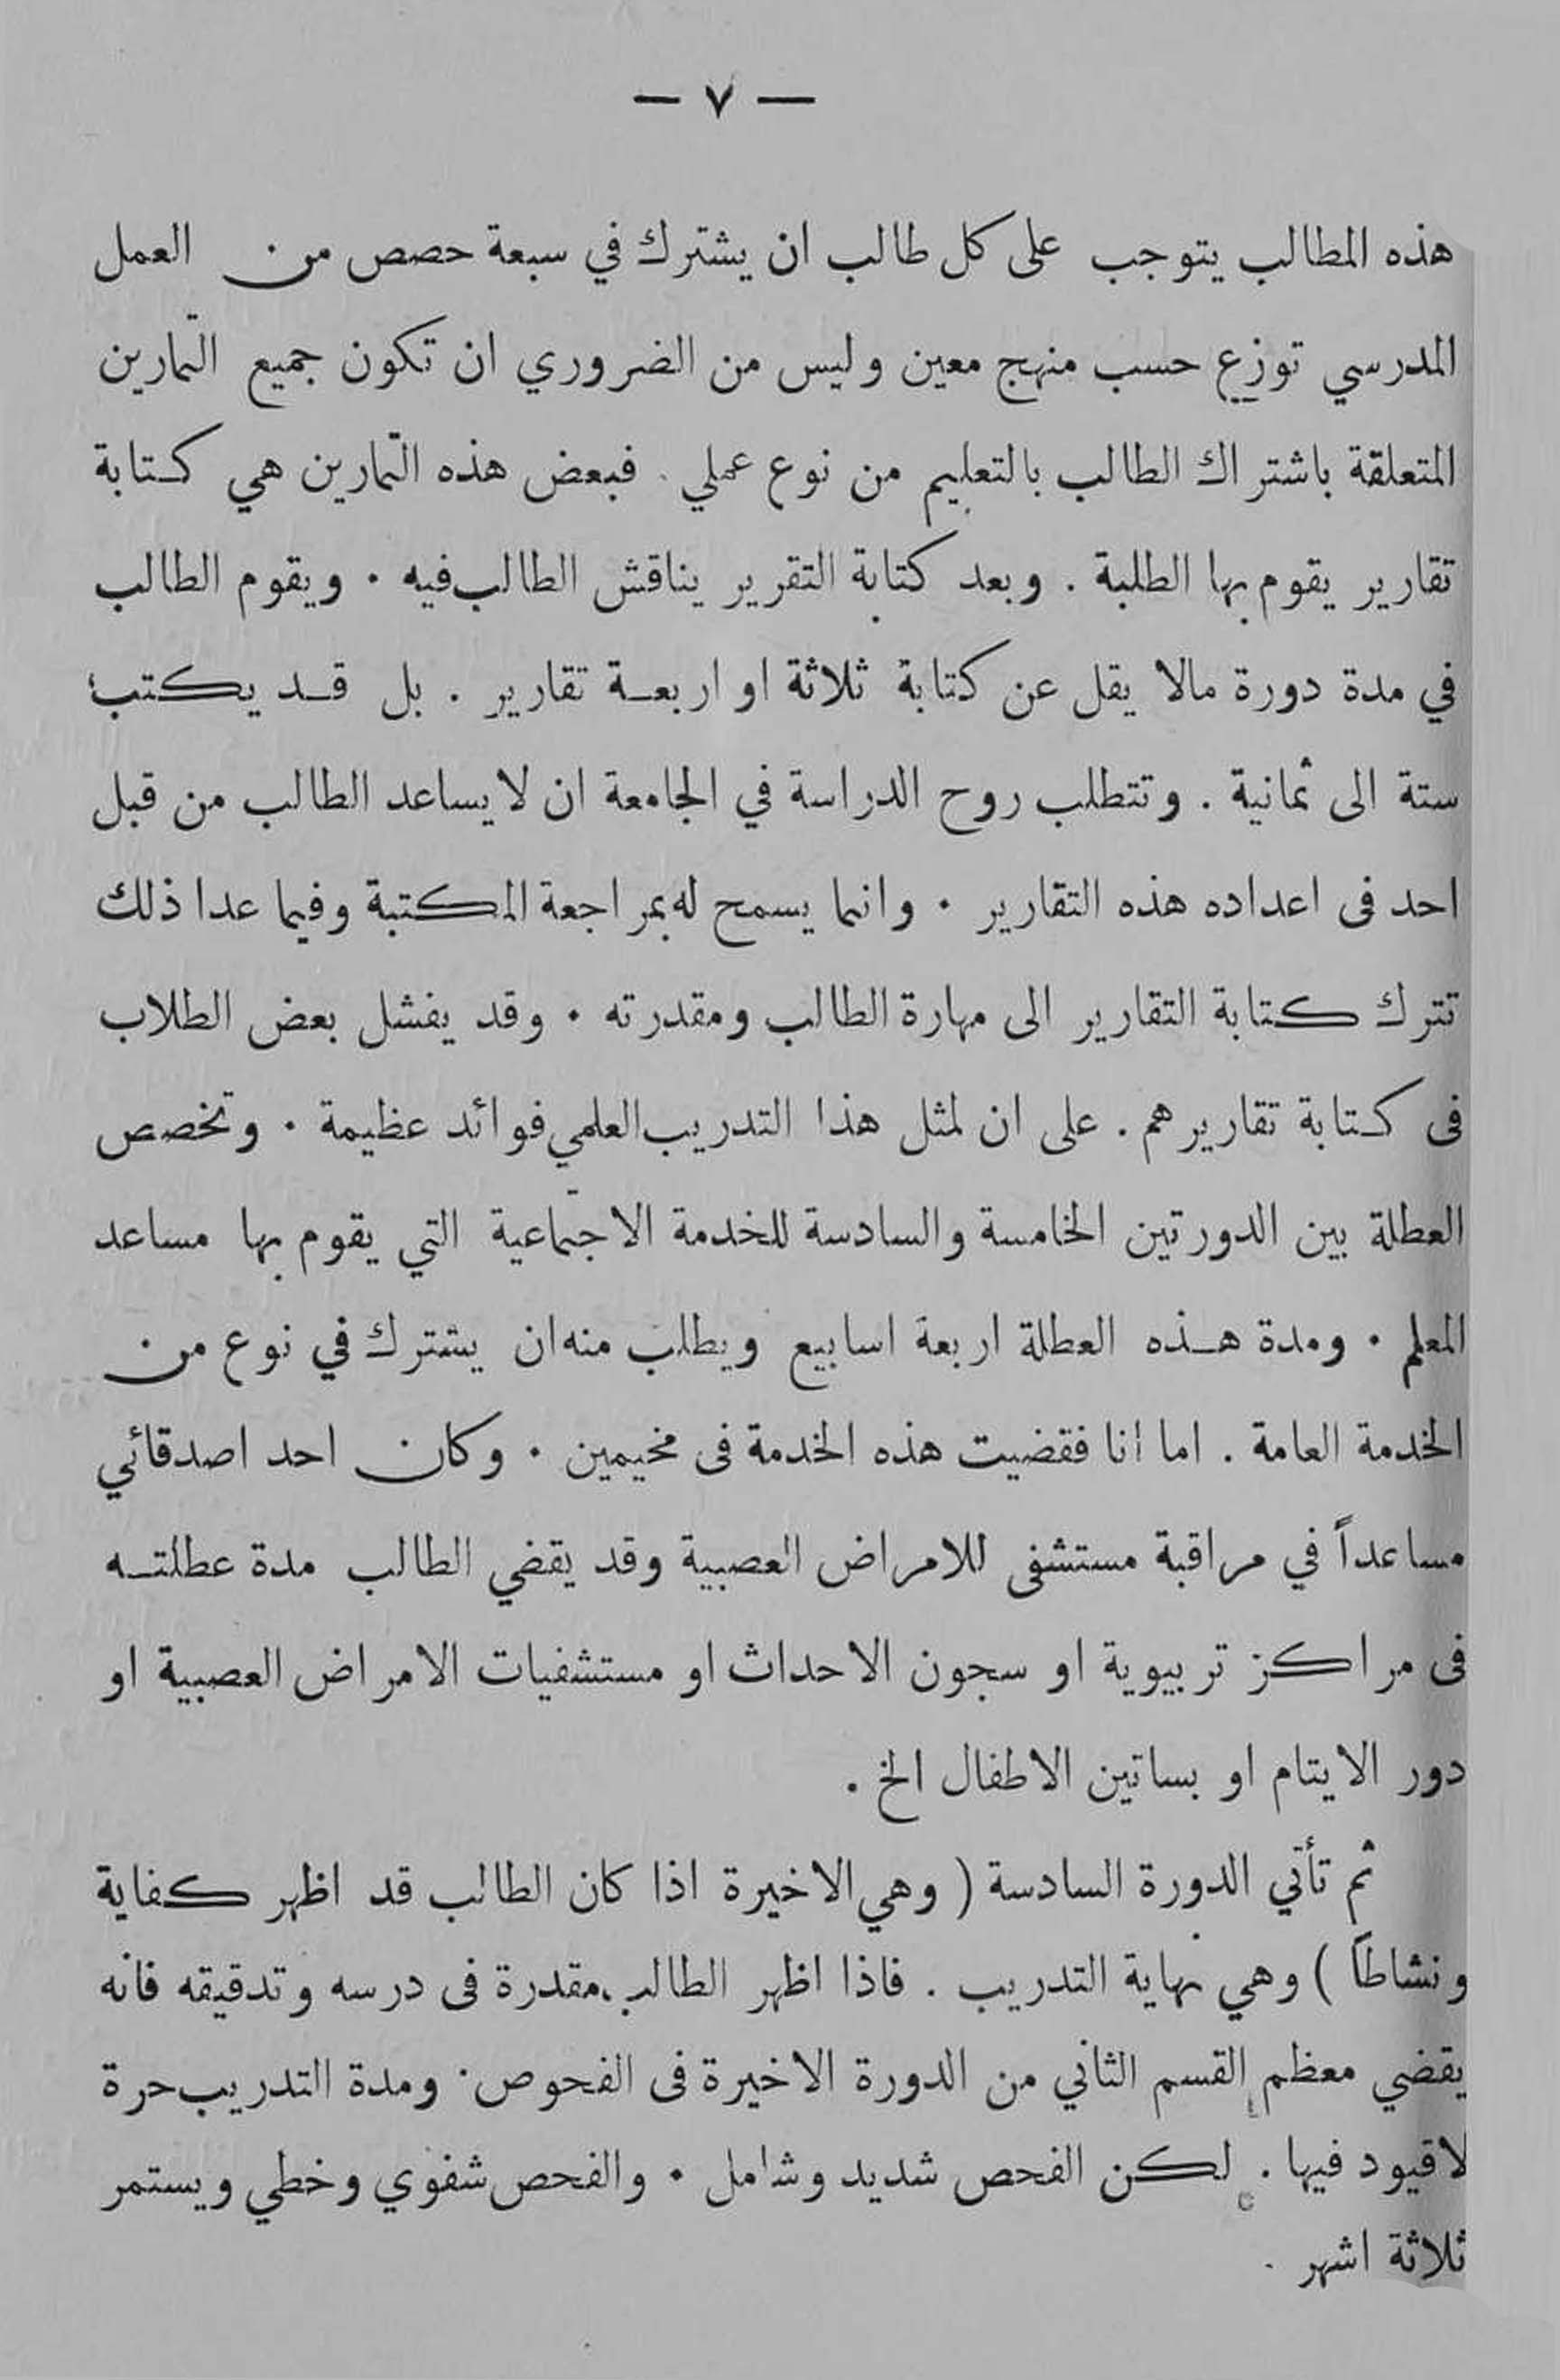 — ٧ —
هذه المطالب يتوجب على كل طالب ان يشترك في سبعة حصص من العمل
المدرسي توزع حسب منهج معين وليس من الضروري ان تكون جميع التّمارين
المتعلقة باشتراك الطالب بالتعليم من نوع عملي . فبعض هذه التّمارين هي كتابة
تقارير يقوم بها الطلبة . وبعد كتابة التقرير يناقش الطالب فيه . ويقوم الطالب
في مدة دورة مالا يقل عن كتابة ثلاثة او اربعة تقارير . بل قد يكتب
ستة الى ثمانية . وتتطلب روح الدراسة في الجامعة ان لا يساعد الطالب من قبل
احد فى اعداده هذه التقارير . وانما يسمح له بمراجعة المكتبة وفيما عدا ذلك
تترك كتابة التقارير الى مهارة الطالب ومقدرته . وقد يفشل بعض الطلاب
فى كتابة تقاريرهم . على ان لمثل هذا التدريب العلمي فوائد عظيمة . وتخصص
العطلة بين الدورتين الخامسة والسادسة للخدمة الاجتماعية التي يقوم بها مساعد
المعلم . ومدة هذه العطلة اربعة اسابيع ويطلب منه ان يشترك في نوع من
الخدمة العامة . اما أنا فقضيت هذه الخدمة فى مخيمين . وكان احد اصدقائي
مساعداً في مراقبة مستشفى للامراض العصبية وقد يقضي الطالب مدة عطلته
فى مراكز تربيوية او سجون الاحداث او مستشفيات الامراض العصبية او
دور الايتام او بساتين الاطفال الخ .
ثم تأتي الدورة السادسة ( وهي الاخيرة اذا كان الطالب قد اظهر كفاية
ونشاطاً ) وهي نهاية التدريب . فاذا اظهر الطالب مقدرة فى درسه وتدقيقه فانه
يقضي معظم القسم الثاني من الدورة الاخيرة فى الفحوص . ومدة التدريب حرة
لا قيود فيها . لكن الفحص شديد وشامل . والفحص شفوي وخطي ويستمر
ثلاثة اشهر .